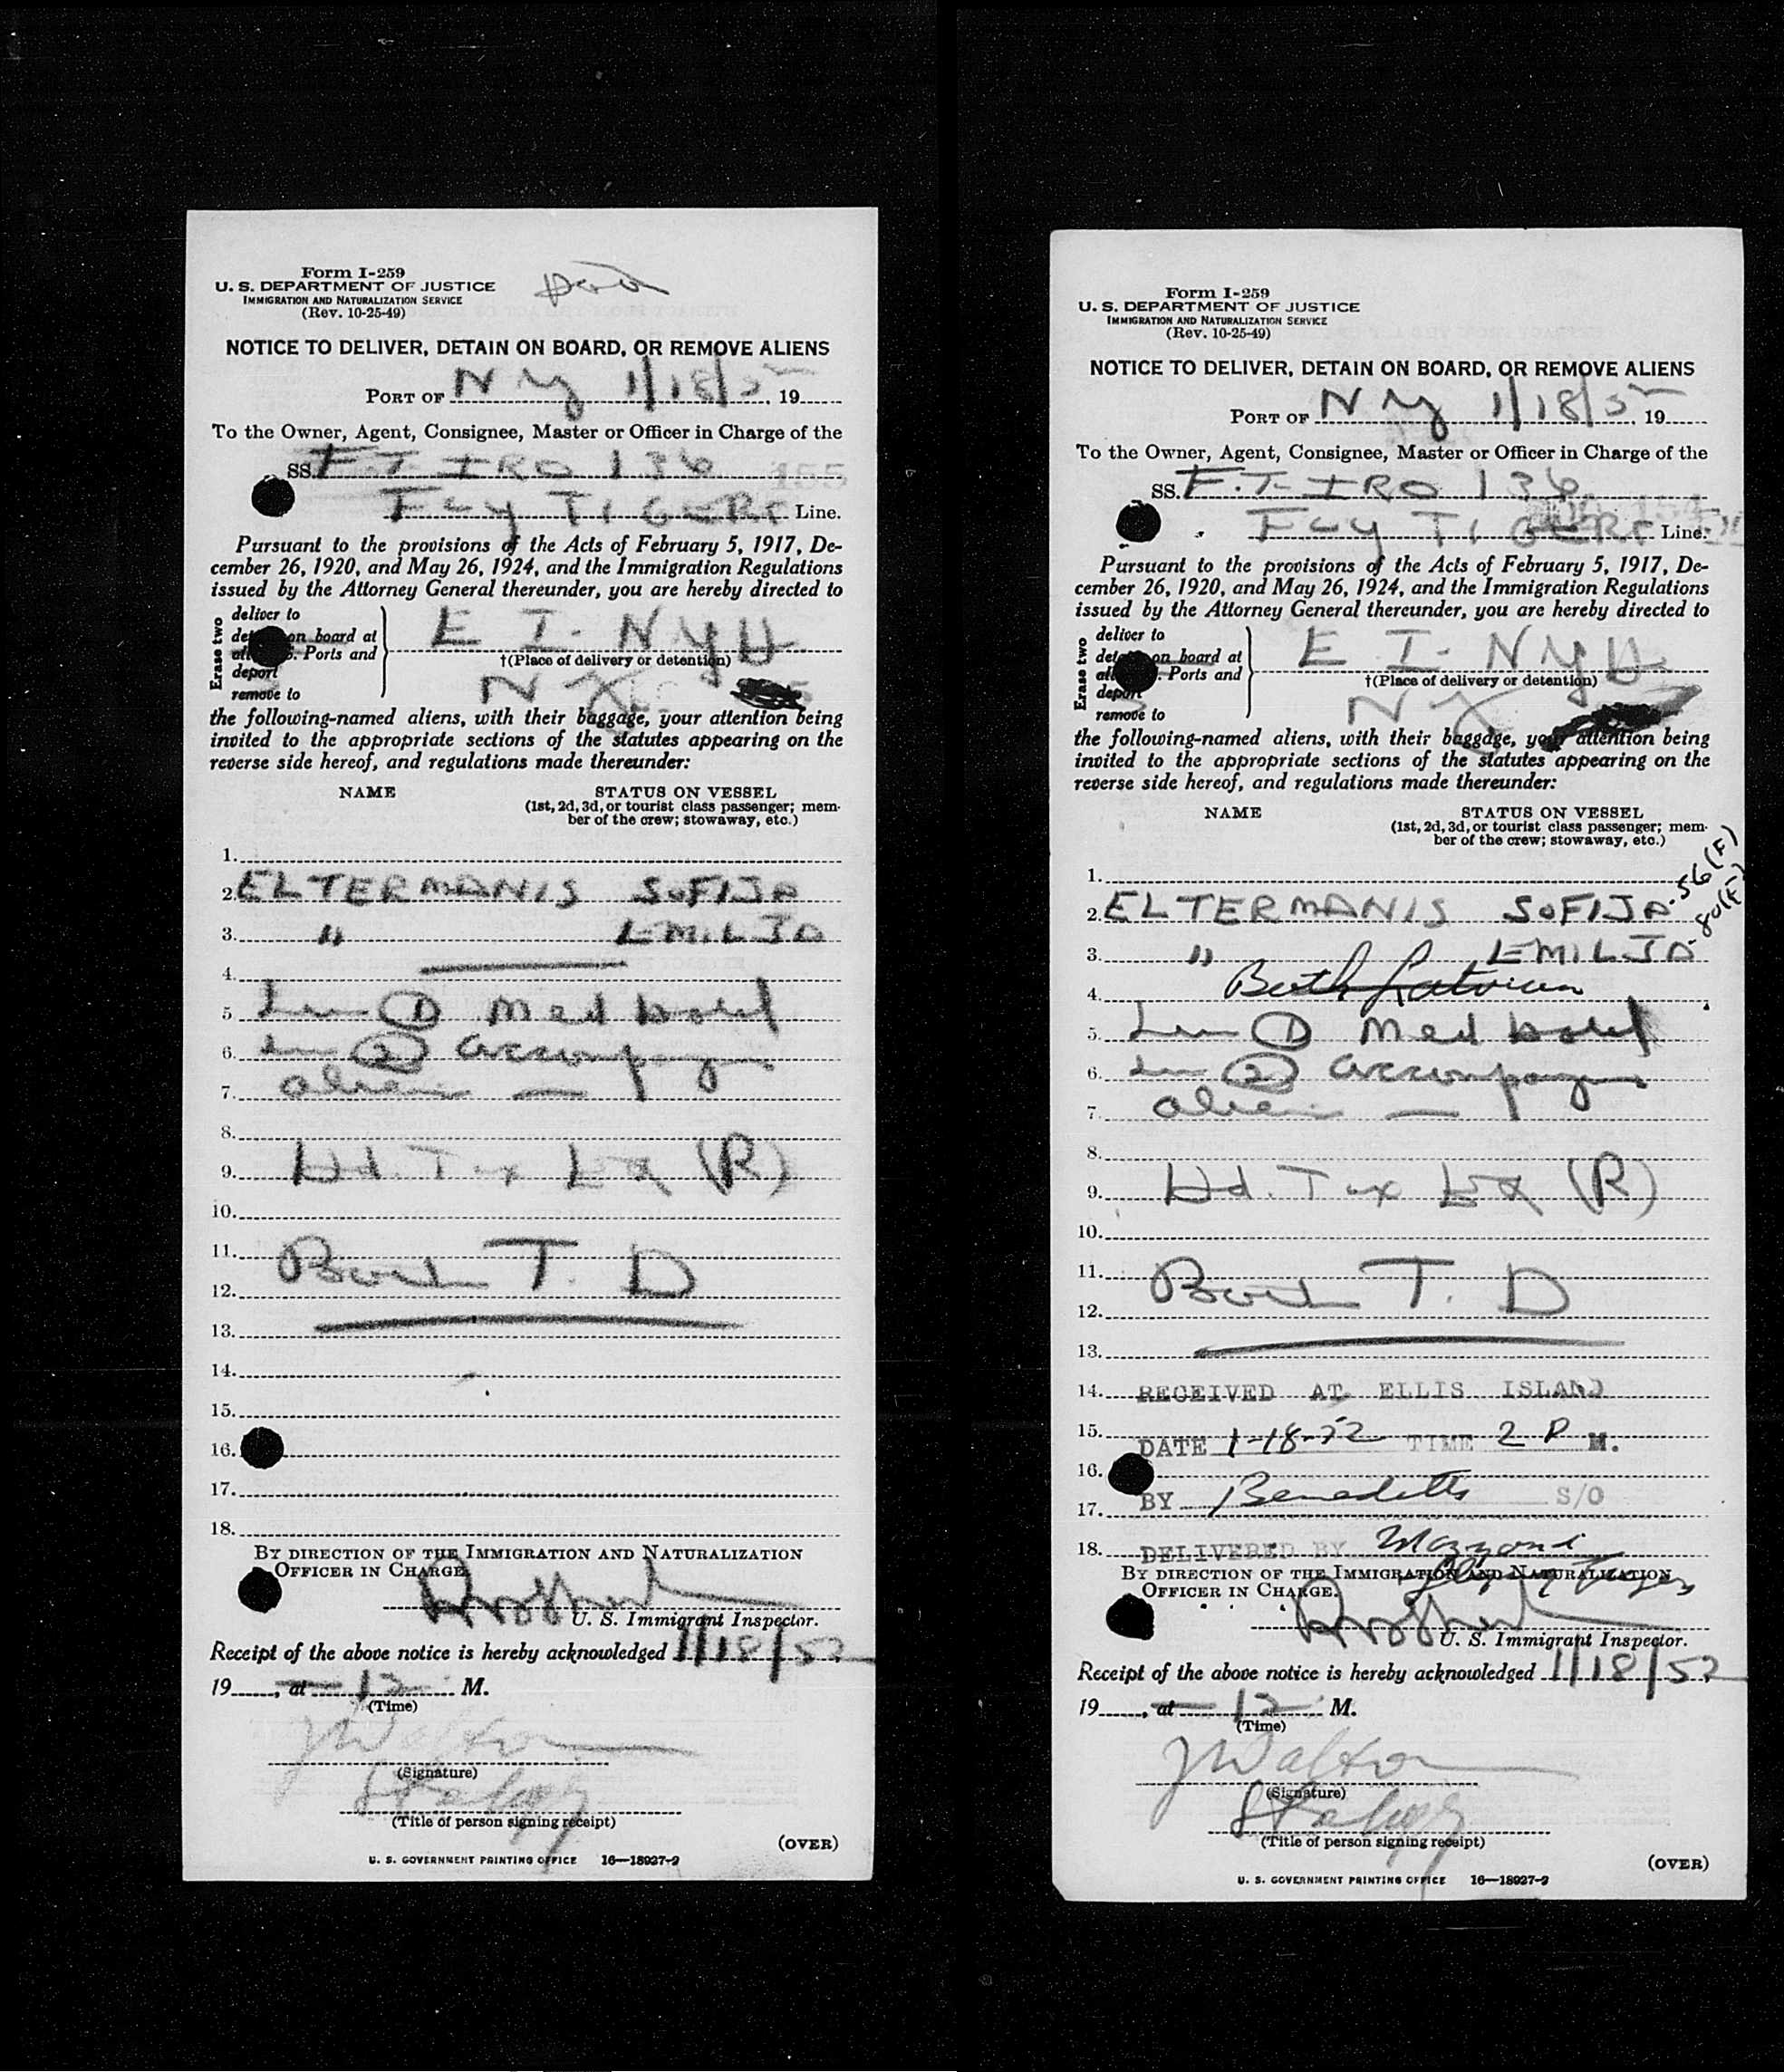 Form I-259
U. S. DEPARTMENT OF JUSTICE
IMMIGRATION AND NATURALIZATION SERVICE
(Rev. 10-25-49)
NOTICE TO DELIVER, DETAIN ON BOARD, OR REMOVE ALIENS
PORT OF N Y 1/18/52, 19
To the Owner, Agent, Consignee, Master or Officer in Charge of the
SS. F.T. IRO 136
155
FLY TIGERS Line.
Pursuant to the provisions of the Acts of February 5, 1917, De-
cember 26, 1920, and May 26, 1924, and the Immigration Regulations
issued by the Attorney General thereunder, you are hereby directed to
Erase two
deliver to
on board at
Ports and
deport
remove to
E I. N Y H
†(Place of delivery or detention)
the following-named aliens, with their baggage, your attention being
invited to the appropriate sections of the statutes appearing on the
reverse side hereof, and regulations made thereunder:
NAME STATUS ON VESSEL
(1st, 2d, 3d, or tourist class passenger; mem-
ber of the crew; stowaway, etc.)
1.
2. ELTERMANIS SOFIJA
3. " EMILJA
4.
5. Line 1 Med hold
6. Line 2 accompanying
7. alien —
8.
9. Hd. Tax Ex (R)
10.
11. Both T. D
12.
13.
14.
15.
16.
17.
18.
BY DIRECTION OF THE IMMIGRATION AND NATURALIZATION
OFFICER IN CHARGE
U. S. Immigrant Inspector.
Receipt of the above notice is hereby acknowledged 1/18/52
19, at 12 M.
(Time)
J Walton
(Signature)
(Title of person signing receipt)
(OVER)
U. S. GOVERNMENT PRINTING OFFICE 16—18927-2
Form I-259
U. S. DEPARTMENT OF JUSTICE
IMMIGRATION AND NATURALIZATION SERVICE
(Rev. 10-25-49)
NOTICE TO DELIVER, DETAIN ON BOARD, OR REMOVE ALIENS
PORT OF N Y 1/18/52, 19
To the Owner, Agent, Consignee, Master or Officer in Charge of the
SS. F.T. IRO 136
154
FLY TIGERS Line.
Pursuant to the provisions of the Acts of February 5, 1917, De-
cember 26, 1920, and May 26, 1924, and the Immigration Regulations
issued by the Attorney General thereunder, you are hereby directed to
Erase two
deliver to
on board at
Ports and
deport
remove to
E I. N Y H
†(Place of delivery or detention)
the following-named aliens, with their baggage, your attention being
invited to the appropriate sections of the statutes appearing on the
reverse side hereof, and regulations made thereunder:
NAME STATUS ON VESSEL
(1st, 2d, 3d, or tourist class passenger; mem-
ber of the crew; stowaway, etc.)
1.
2. ELTERMANIS SOFIJA - 56 (F)
3. " EMILJA - 80 (F)
4. Both Latvian
5. Line 1 Med hold
6. Line 2 accompanying
7. alien —
8.
9. Hd. Tax Ex (R)
10.
11. Both T. D
12.
13.
14. RECEIVED AT ELLIS ISLAND
15. DATE 1-18-52 TIME 2 P M.
16.
17. BY Benedetto S/O
18. DELIVERED BY
BY DIRECTION OF THE IMMIGRATION AND NATURALIZATION
OFFICER IN CHARGE.
U. S. Immigrant Inspector.
Receipt of the above notice is hereby acknowledged 1/18/52
19, at 12 M.
(Time)
J Walton
(Signature)
(Title of person signing receipt)
(OVER)
U. S. GOVERNMENT PRINTING OFFICE 16—18927-2